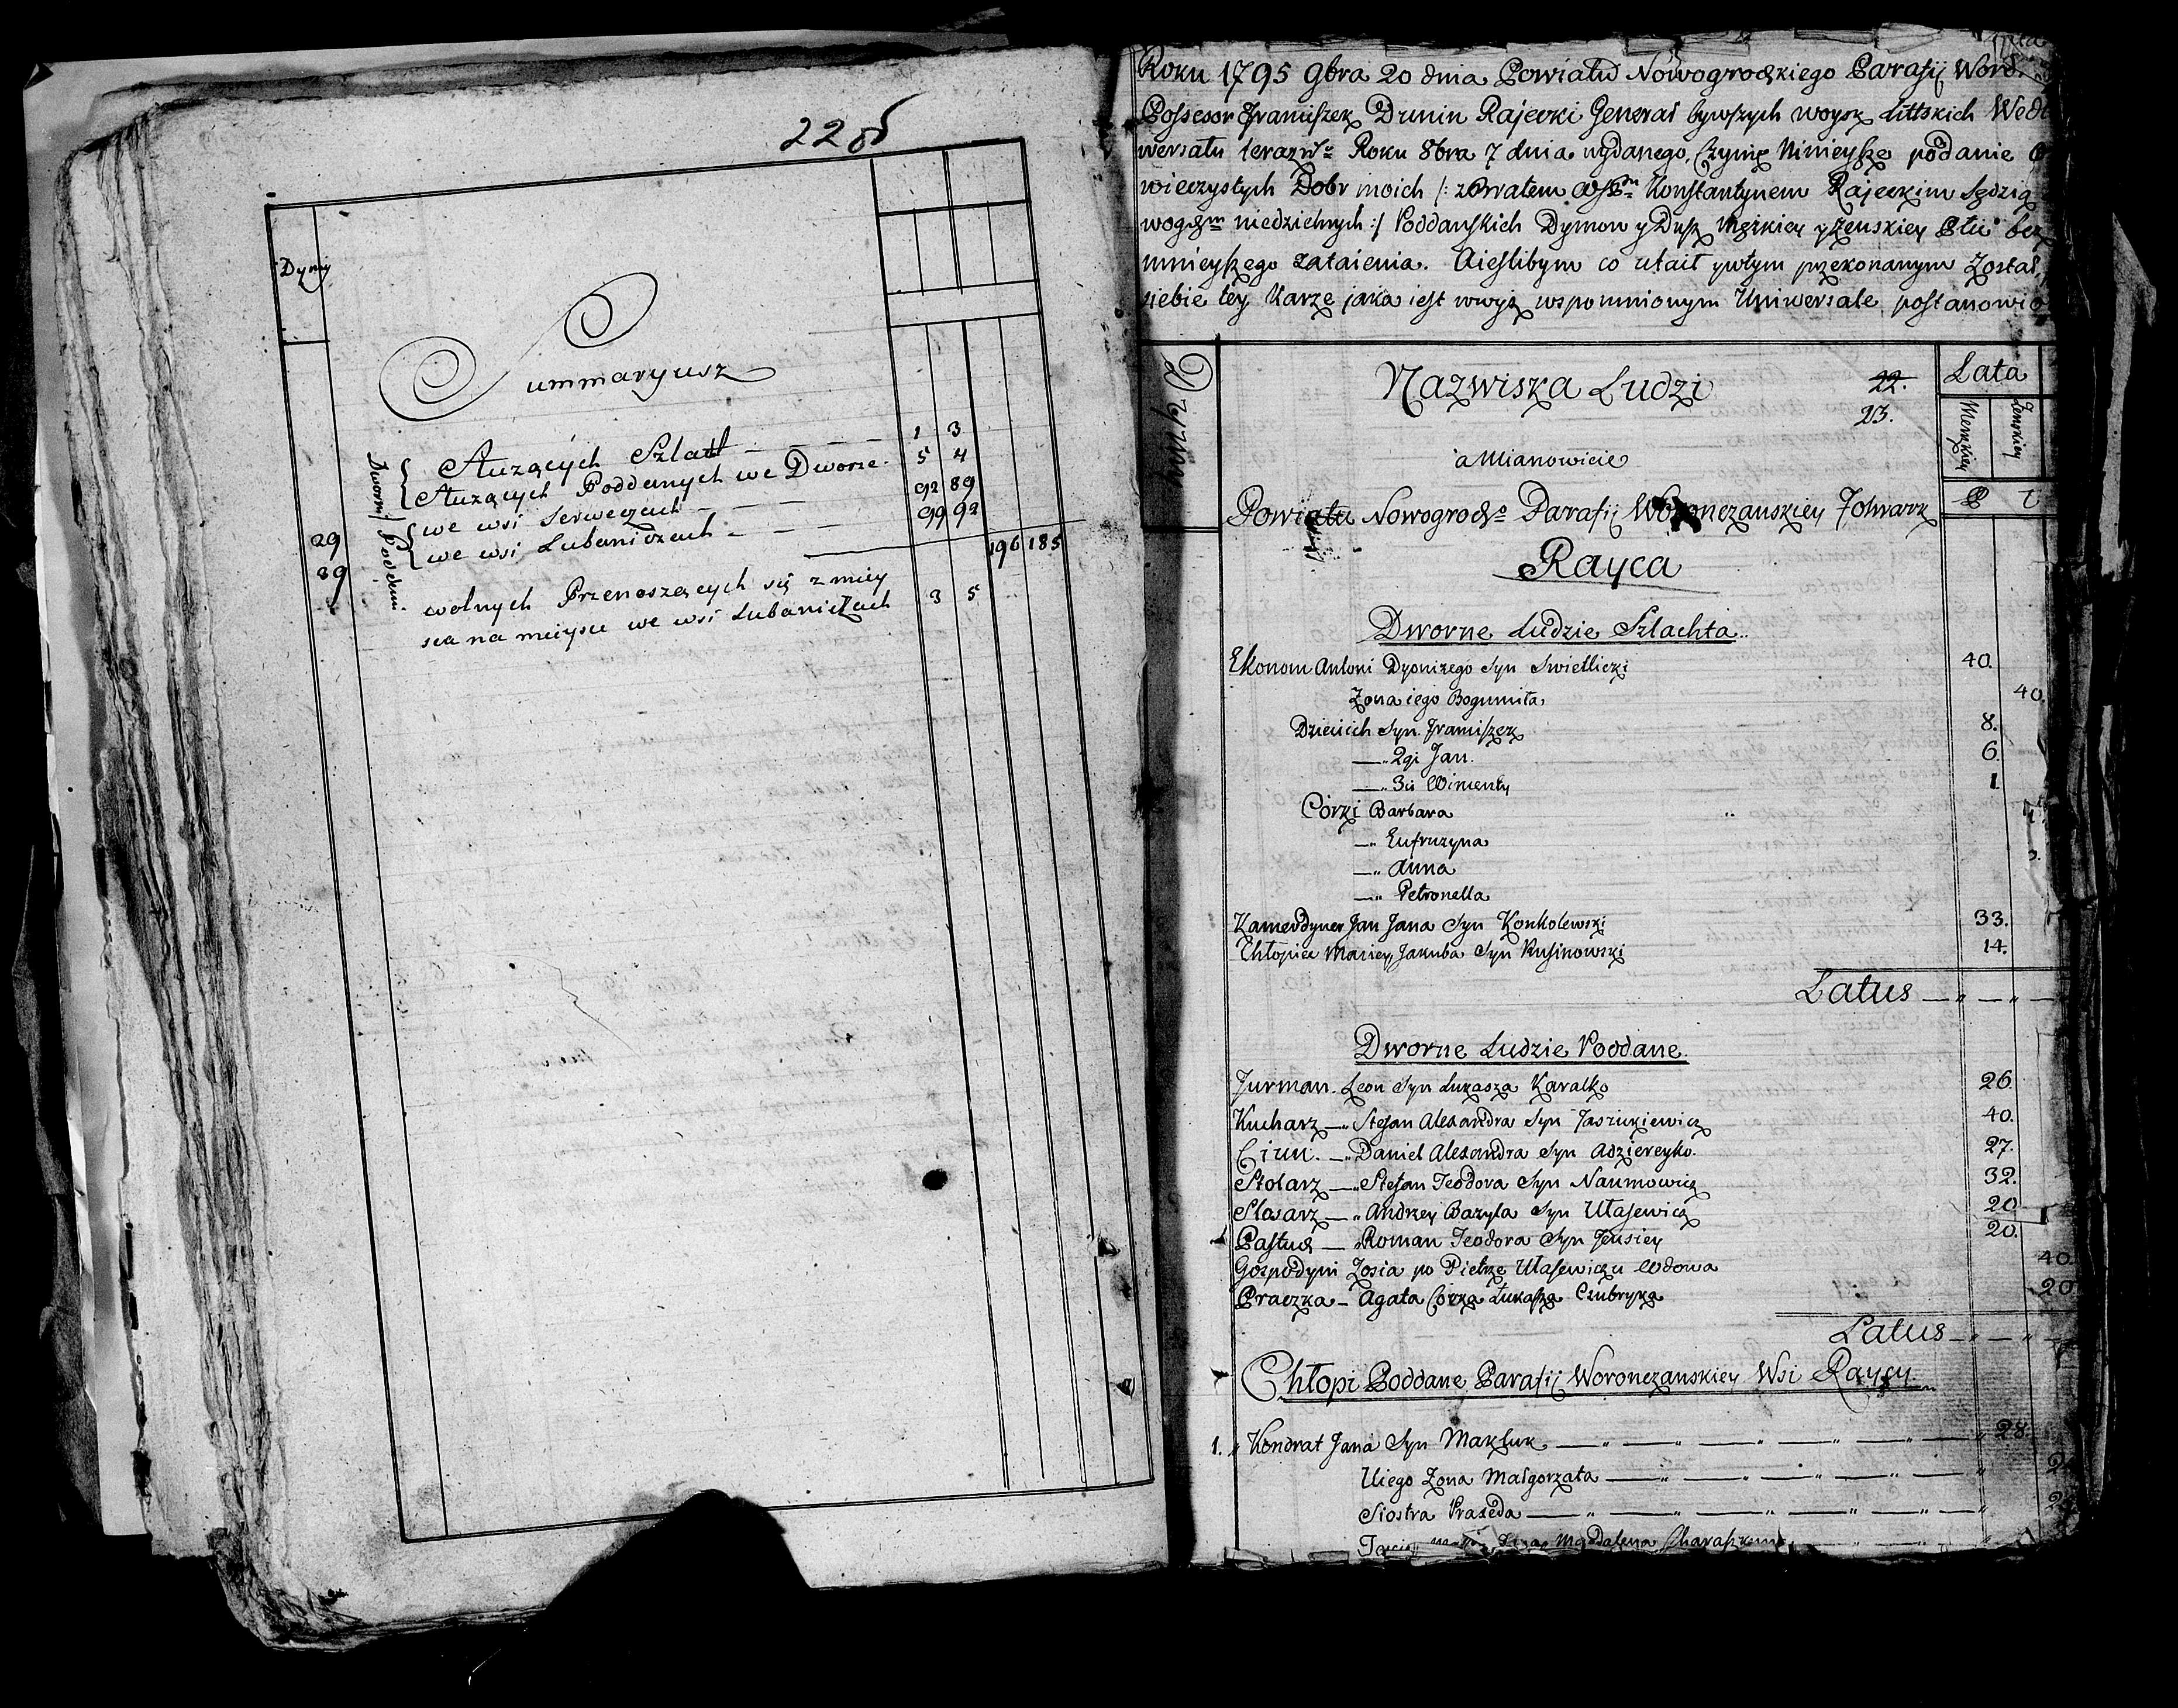 228
Dymy
Summaryusz
Służących Szlacht — — — 1 3
Służących Poddanych we Dworze 5 4
Dworni
we wsi Serweczach — — — 92 89
29
we wsi Lubaniczach — — — 99 92
39
Poddani
196 185
wolnych Przenoszących się z miey
sca na mieysce we wsi Lubaniczach 3 5
Roku 1795 9bra 20 dnia Powiatu Nowogrodzkiego Parafij
Possesor Franciszek Dunin Rajecki Generał bywszych woysk Littskich
wersału teraz Roku 8bra 7 dnia wydanego, Czynię Ninieysze podanie
wieczystych Dobr moich /: z Bratem Konstantynem Rajeckim Sędzią
niedzielnych :/ Poddanskich Dymow y Dusz Męzkiey y Zenskiey Płci bez
mnieyszego zataienia. A ieslibym co utaił y w tym przekonanym Został,
siebie tey Karze jaka iest w wyż wspomnionym Uniwersale postanowio
Dymy
Nazwiska Ludzi
22.
23.
Lata
Męzkiey
Zenskiey
a Mianowicie
P ł
Powiatu Nowogrodzo Parafij Woronczanskiey Folwark
Rayca
Dworne Ludzie Szlachta
Ekonom Antoni Dyonizego Syn Swietlicki 40.
Zona iego Bogumiła 40.
Dzieci ich Syn Franciszek 8.
—" 2gi Jan. 6.
—" 3ci Wincenty 1.
Corki Barbara
—" Eufruzyna
—" Anna
—" Petronella
Kamerdyner Jan Jana Syn Konkolewski 33.
Chłopiec Maciey Jakuba Syn Rusinowski 14.
Latus — " — " —
Dworne Ludzie Poddane.
Furman. Leon Syn Łukasza Karalko 26.
Kucharz —" Stefan Alexandra Syn Jasiukiewicz 40.
Ciwun. —" Daniel Alexandra Syn Adziereyko. 27.
Stolarz —" Stefan Teodora Syn Naumowicz 32.
Slosarz —" Andrzey Bazyla Syn Ułasewicz 20
Pastuch — " Roman Teodora Syn 20.
Gospodyni Zosia po Pietrze Ułasewiczu Wdowa 40.
Praczka — Agata Corka Łukasza Czubryka 20
Latus — " — " —
Chłopi Poddane Parafij Woronczanskiey Wsi Raycy
1. " Kondrat Jana Syn Makśuk — " — " — " — " — " — " 28.
U iego Zona Małgorzata — " — " — " — " — "
Siostra Praxeda — " — " — " — " — " — "
Magdalena